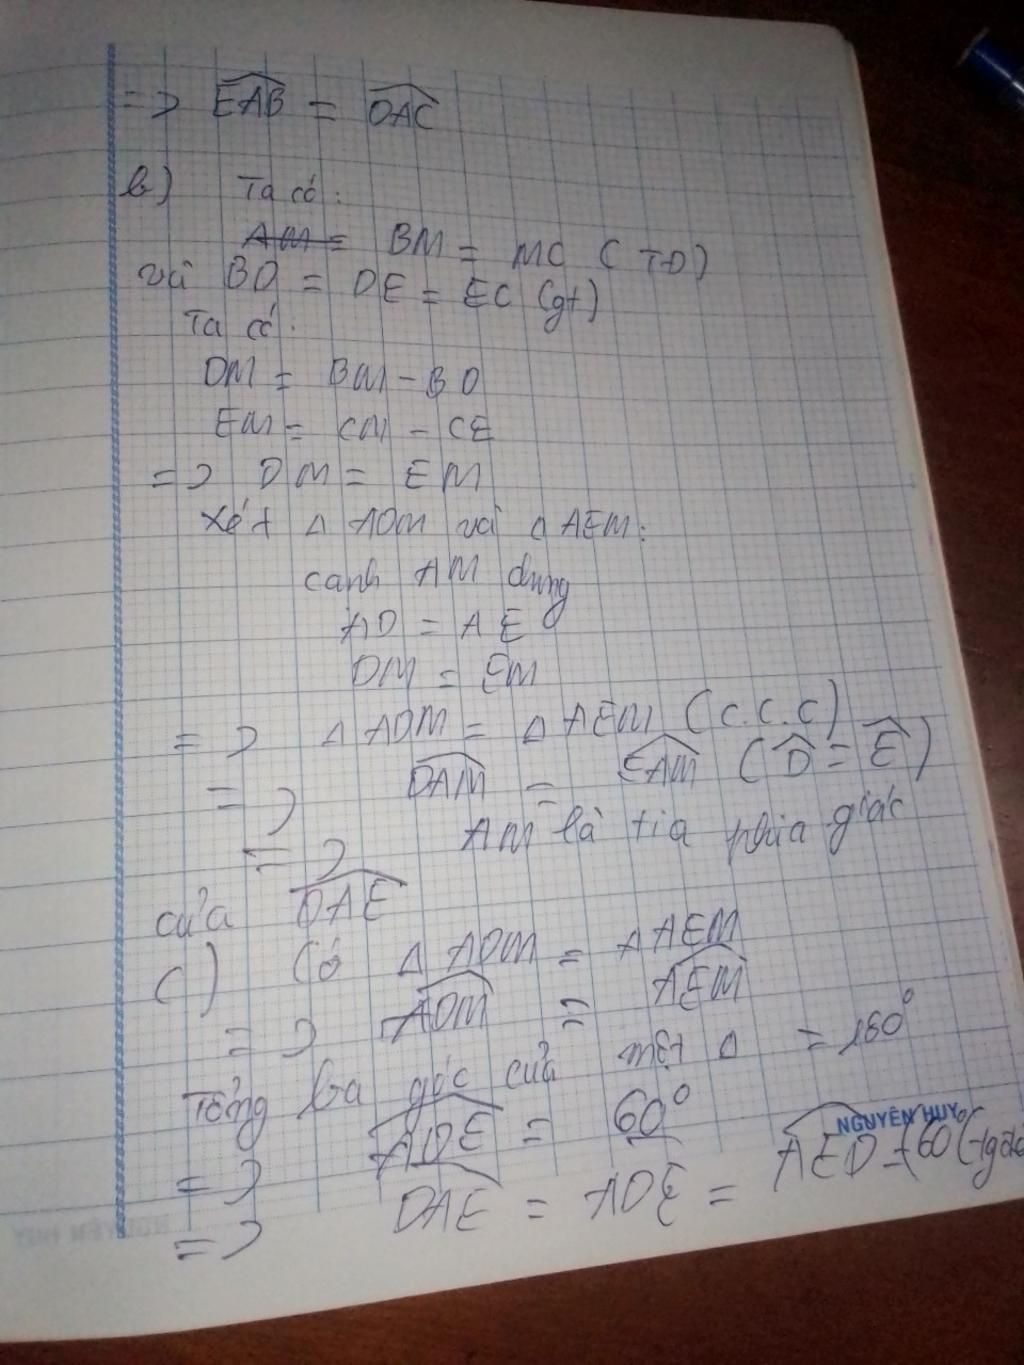 => EAB = DAC
b) Ta có:
AM = BM = MC (TĐ)
và BD = DE = EC (gt)
Ta có:
DM = BM - BD
EM = CM - CE
=> DM = EM
Xét Δ ADM và Δ AEM:
cạnh AM chung
AD = AE
DM = EM
=> Δ ADM = Δ AEM (c.c.c)
=> DAM = EAM (D = E)
=> AM là tia phân giác
của DAE
c) Có Δ ADM = Δ AEM
=> ADM = AEM
Tổng ba góc của một Δ = 180°
=> ADE = 60°
=> DAE = ADE = AED = 60°
NGUYÊN HUY
NGUYÊN HUY